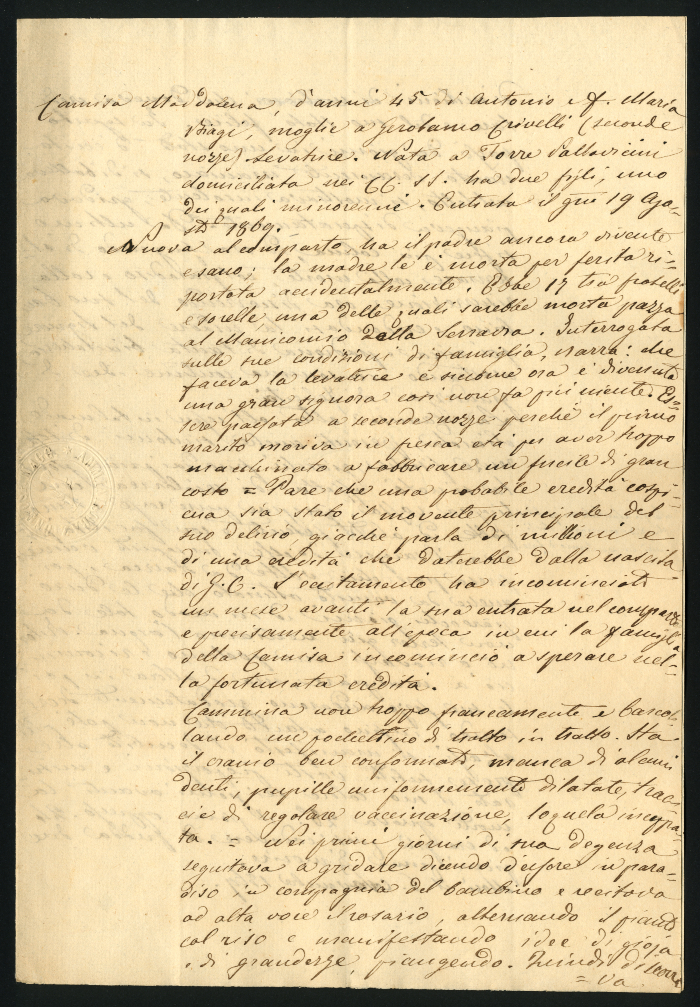 Camisa Maddalena, d'anni 45 di Antonio e f. Maria
Biagi, moglie a Gerolamo Crivelli (seconde
nozze) Levatrice. Nata a Torre Pallavicini
domiciliata nei CC. SS. ha due figli, uno
dei quali minorenne. Entrata il giorno 19 Ago-
sto 1869.
Nuova al comparto, ha il padre ancora vivente
e sano; la madre le è morta per ferita ri-
portata accidentalmente. Ebbe 17 tra fratelli
e sorelle, una delle quali sarebbe morta pazza
al Manicomio della Senavra. Interrogata
sulle sue condizioni di famiglia, narra: che
faceva la levatrice e siccome ora è divenuta
una gran signora così non fa più niente. Es-
sere passata a seconde nozze perchè il primo
marito moriva in fresca età per aver troppo
macchinato a fabbricare un fucile di gran
costo = Pare che una probabile eredità cospi-
cua sia stato il movente principale del
suo delirio, giacchè parla di millioni e
di una eredità che daterebbe dalla nascita
di G. C. L'eccitamento ha incominciato
un mese avanti la sua entrata nel comparto
e precisamente all'epoca in cui la famiglia
della Camisa incominciò a sperare nel-
la fortunata eredità.
Cammina non troppo francamente e barcol-
lando un pochettino di tratto in tratto. Ha
il cranio ben conformato, manca di alcuni
denti, pupille uniformemente dilatate, trac-
cie di regolare vaccinazione, loquela inceppa-
ta. = Nei primi giorni di sua degenza
seguitava a gridare dicendo d'essere in para-
diso in compagnia del bambino e recitava
ad alta voce il rosario, alternando il pianto
col riso e manifestando idee di gioja
e di grandezze, piangendo. Quindi
= va